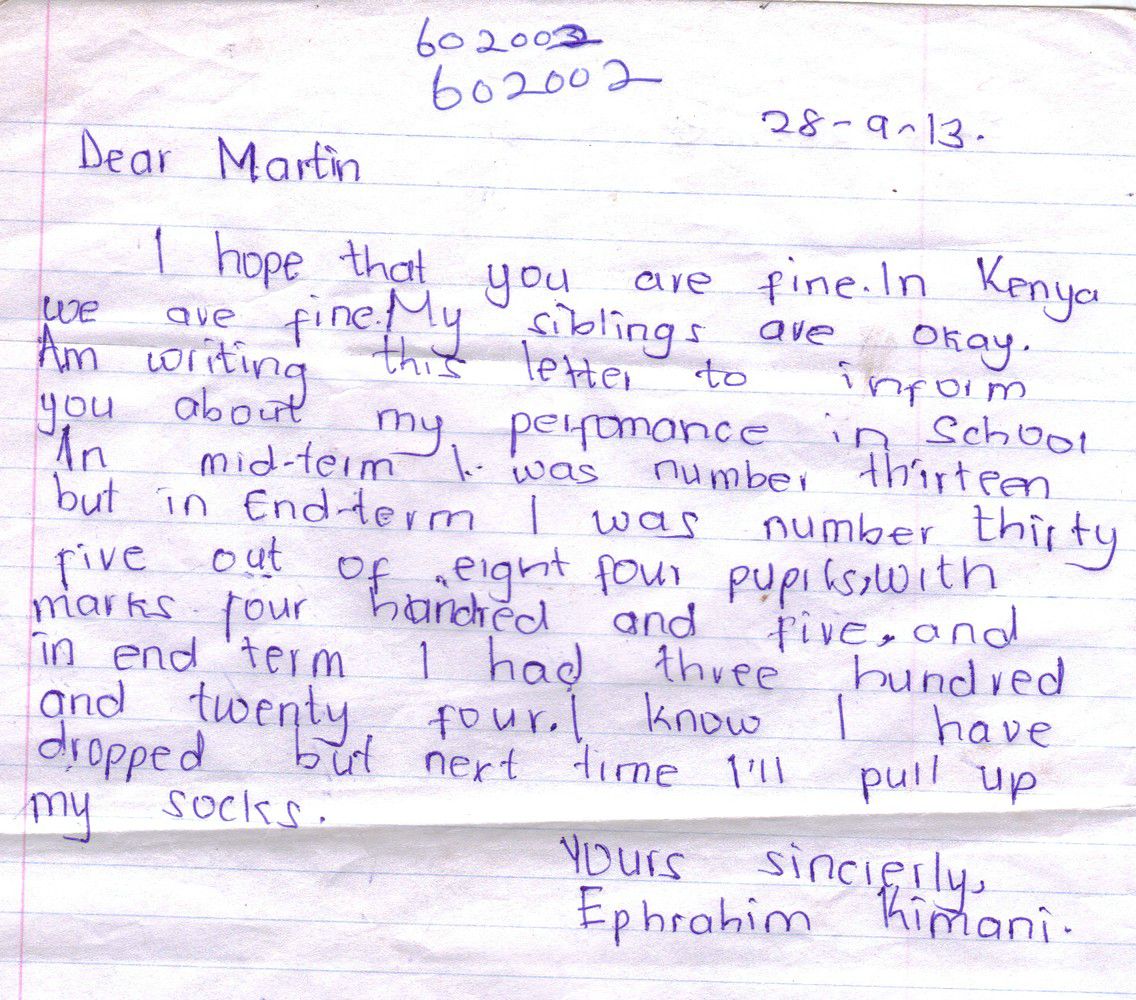 602002
602002
28-9-13.
Dear Martin
I hope that you are fine. In Kenya
we are fine. My siblings are okay.
Am writing this letter to inform
you about my perfomance in School
In mid-term I was number thirteen
but in End-term I was number thirty
five out of eight four pupils, with
marks four hundred and five, and
in end term I had three hundred
and twenty four. I know I have
dropped but next time I'll pull up
my socks.
Yours sincierly,
Ephrahim Kimani.